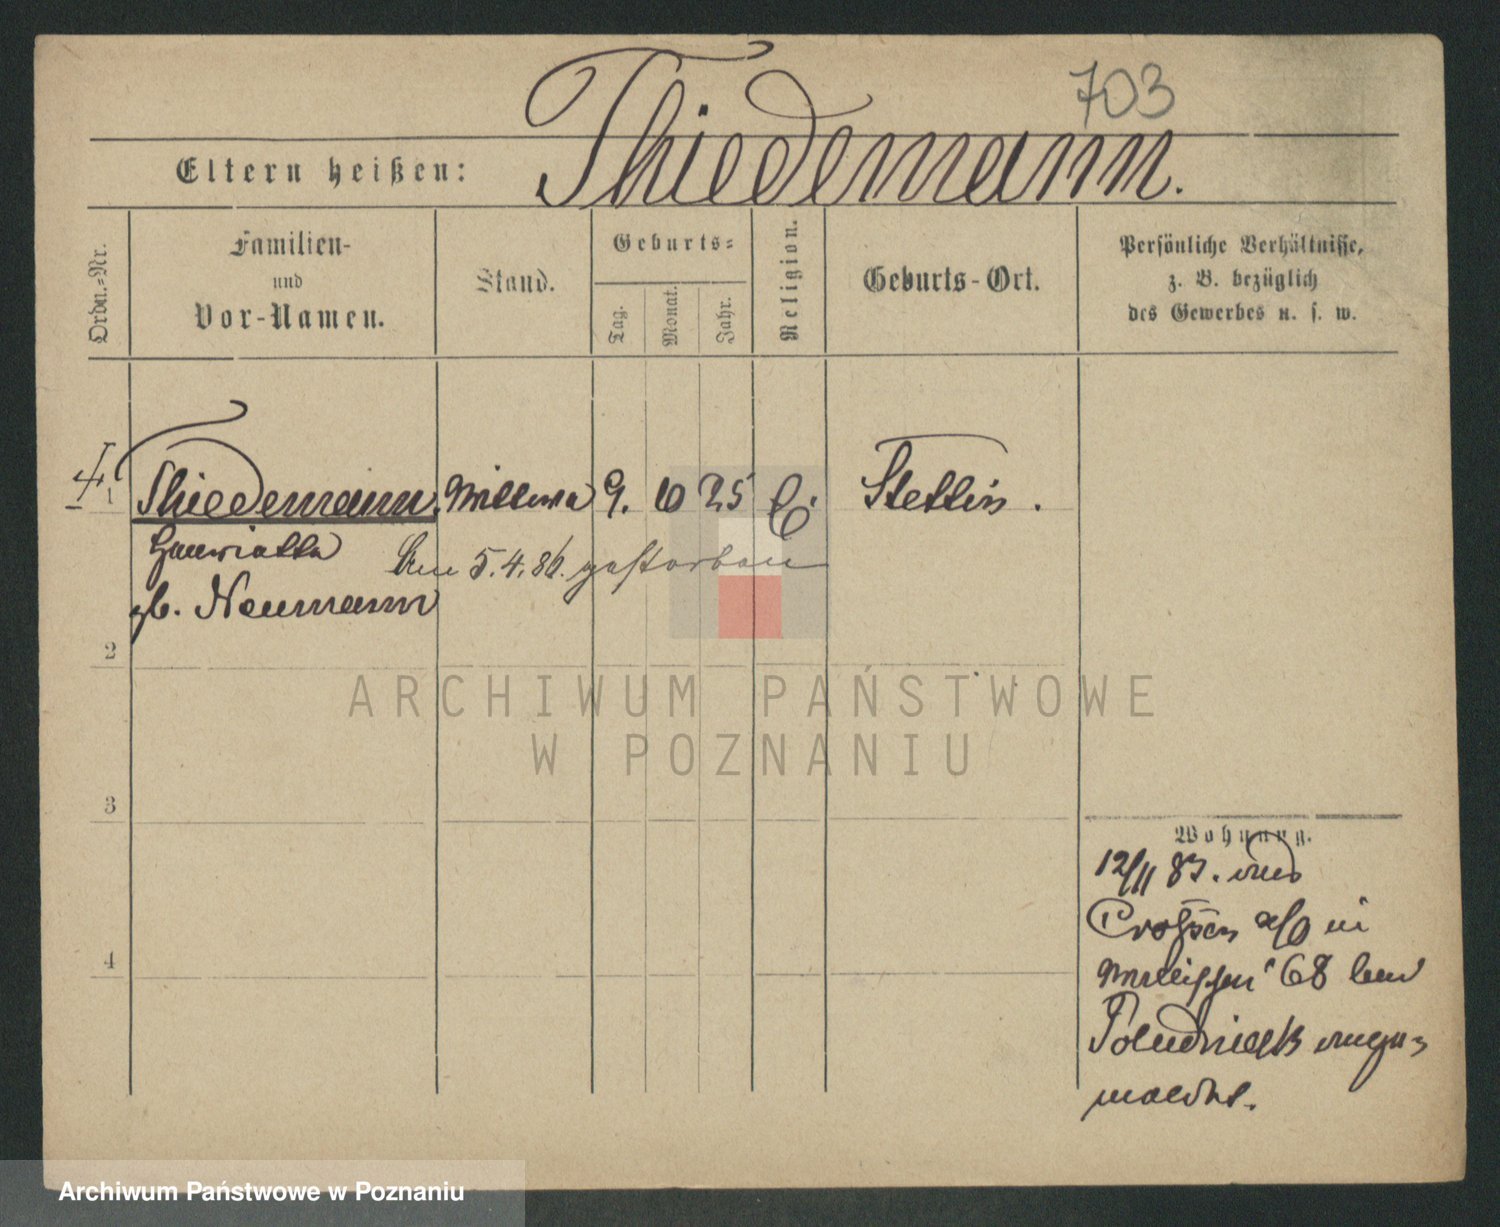 703
Eltern heißen: Thiedemann.
Ordn.-Nr.
Familien-
und
Vor-Namen.
Stand.
Geburts-
Tag.
Monat.
Jahr.
Religion.
Geburts-Ort.
Persönliche Verhältnisse,
z. B. bezüglich
des Gewerbes u. s. w.
1 Thiedemann, Wittwe 9. 6 25 E. Stettin.
Henriette
gb. Neumann
Am 5.4.86. gestorben
2
ARCHIWUM PAŃSTWOWE
W POZNANIU
3
4
Wohnung.
12/11 83. aus
Crossen a/O in
68 bei
ange-
meldet.
Archiwum Państwowe w Poznaniu